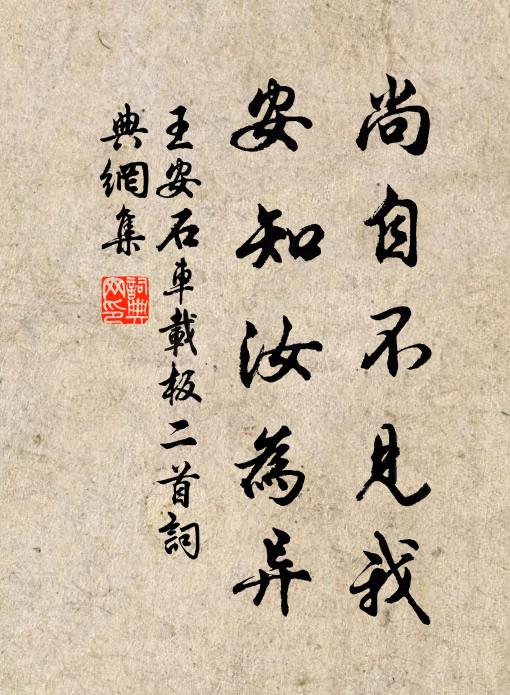 尚自不見我
安知汝為异
王安石車載板二首詞
典網集
詞典网印